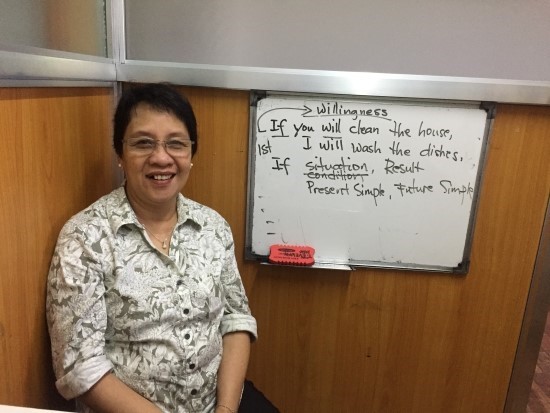 Willingness
If you will clean the house,
1st I will wash the dishes.
If situation, Result
condition
Present Simple, Future Simple